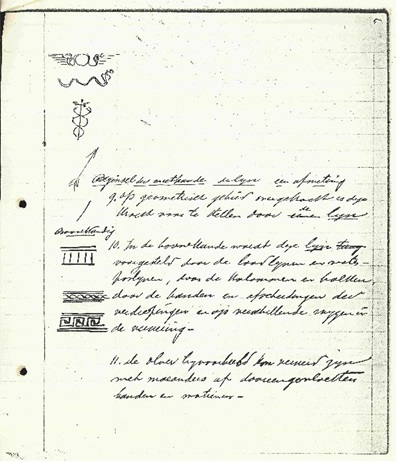 Beginsel der meetkunde de lijn en afmeting
9. op geometrisch gebied overgebracht is deze
kracht voor te stellen door de lijn
Bouwkundig
10. In de bouwkunde wordt deze lijn
voorgesteld door de loodlijnen en water-
paslijnen, door de kolommen en balken,
door de banden en afscheidingen der
verdiepingen en op verschillende wijzen in
de versiering.
11. de vloer bijvoorbeeld kan versierd zijn
met maeanders of dooreengevlochten
banden en motieven